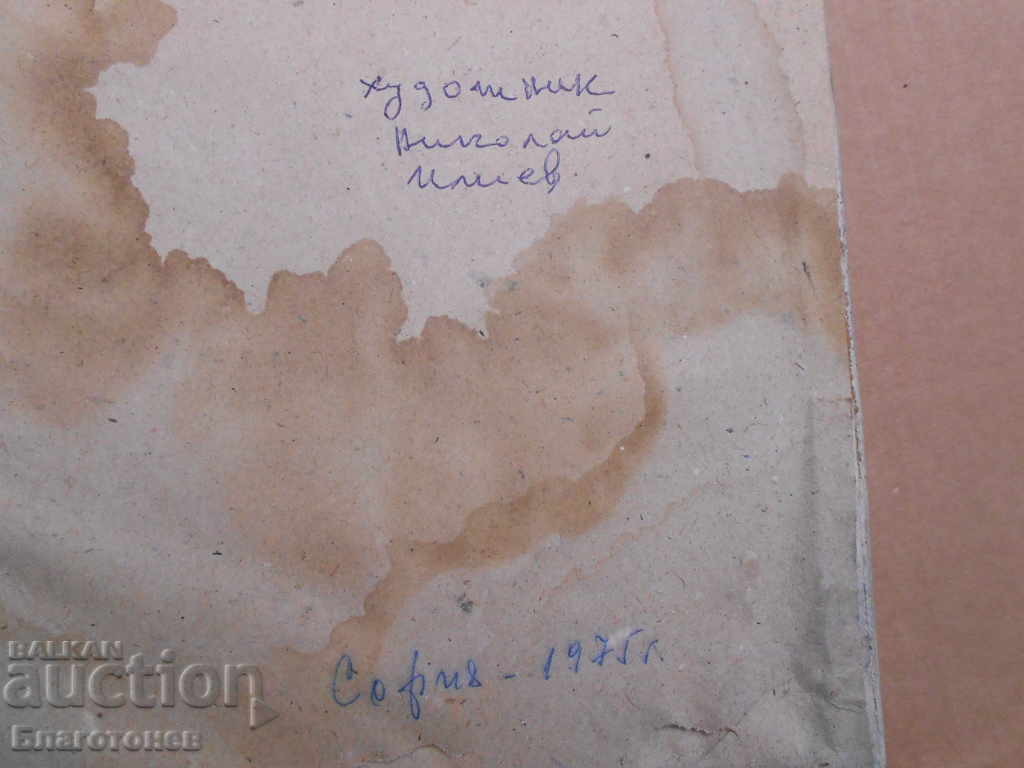 художник
Николай
Илиев
София - 1975 г.
BALKAN
auction
Благотонев